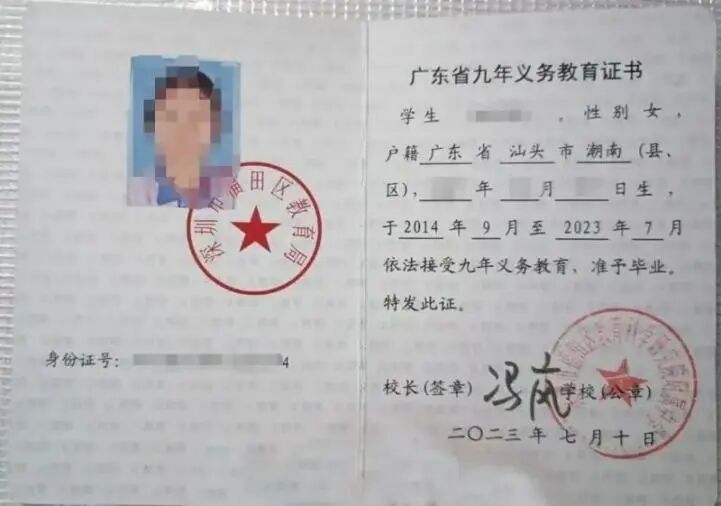 深圳市福田区教育局
身份证号：4
广东省九年义务教育证书
学生 ，性别 女，
户籍 广东 省 汕头 市 潮南 (县、
区)， 年 月 日生，
于 2014 年 9 月至 2023 年 7 月
依法接受九年义务教育，准予毕业。
特发此证。
校长(签章) 学校(公章)
二〇二三年 七 月 十 日